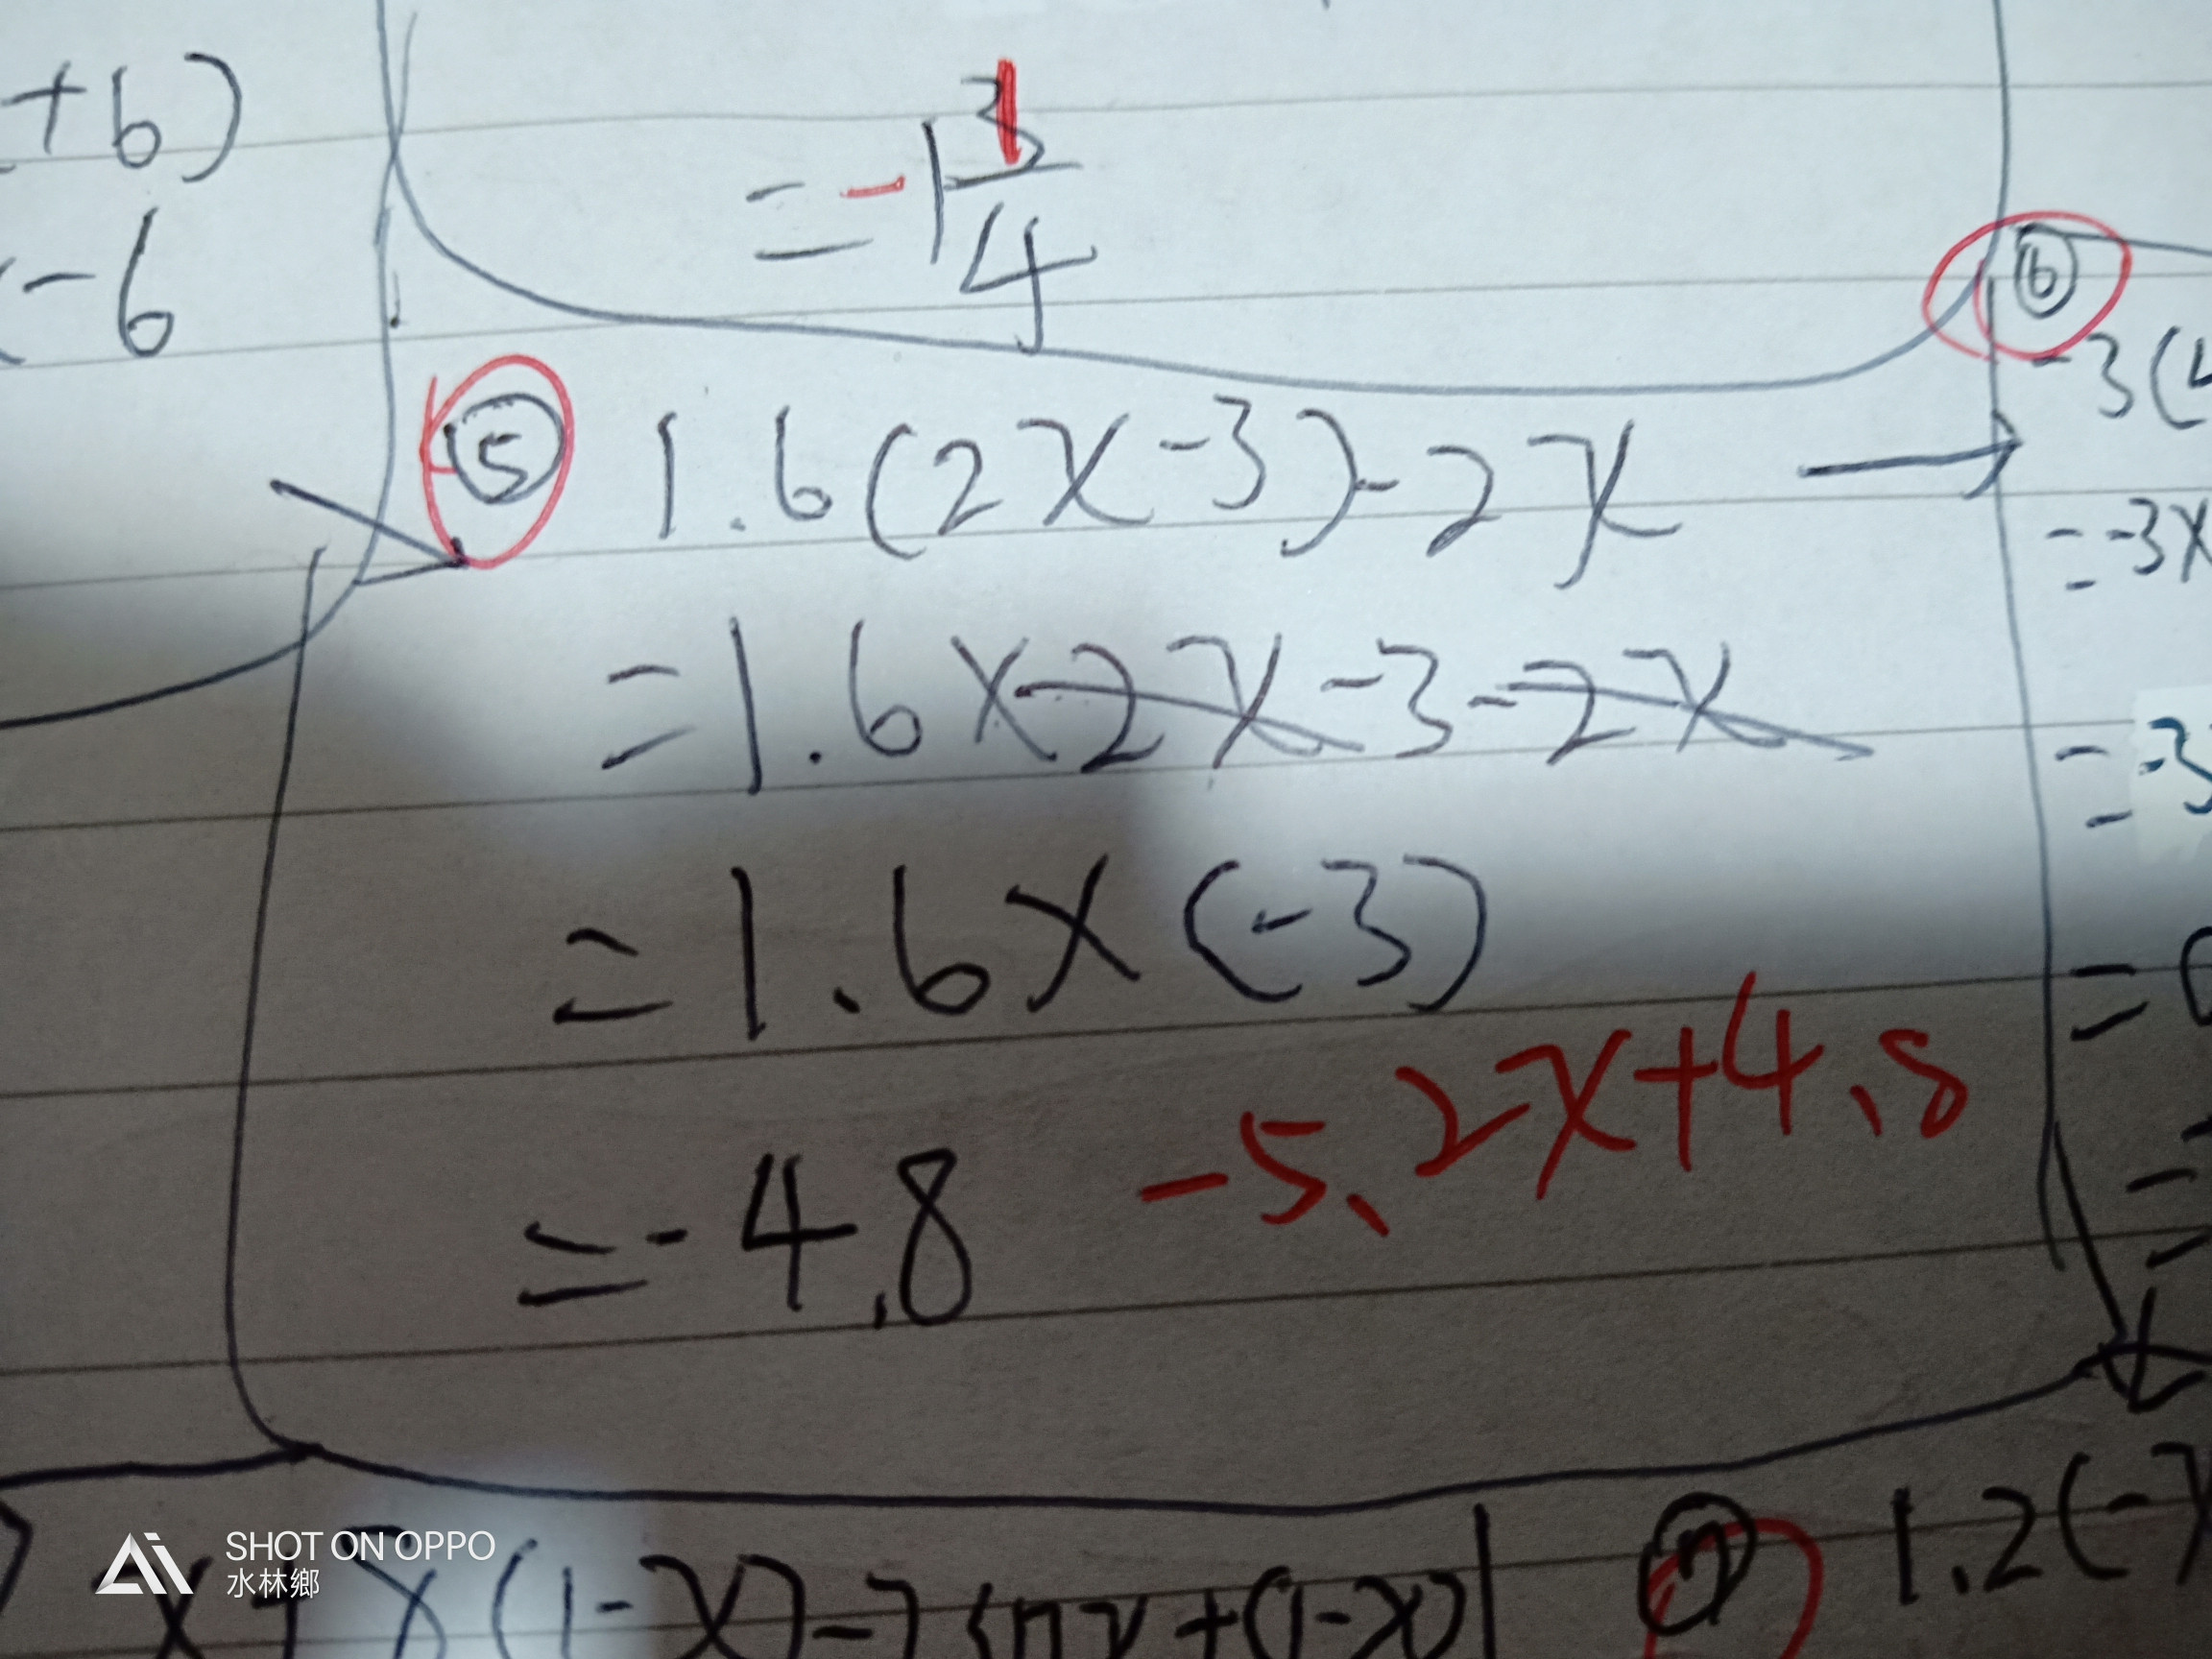 +6)
-6
= -1 3/4
1
⑤ 1.6(2x-3)-2x
=1.6×2x-3-2x
=1.6×(-3)
=-4.8
-5.2x+4.8
⑥
-3(4
=-3x
=-3
=
x(1-x)
+(1-x)
1.2(-
SHOT ON OPPO
水林鄉